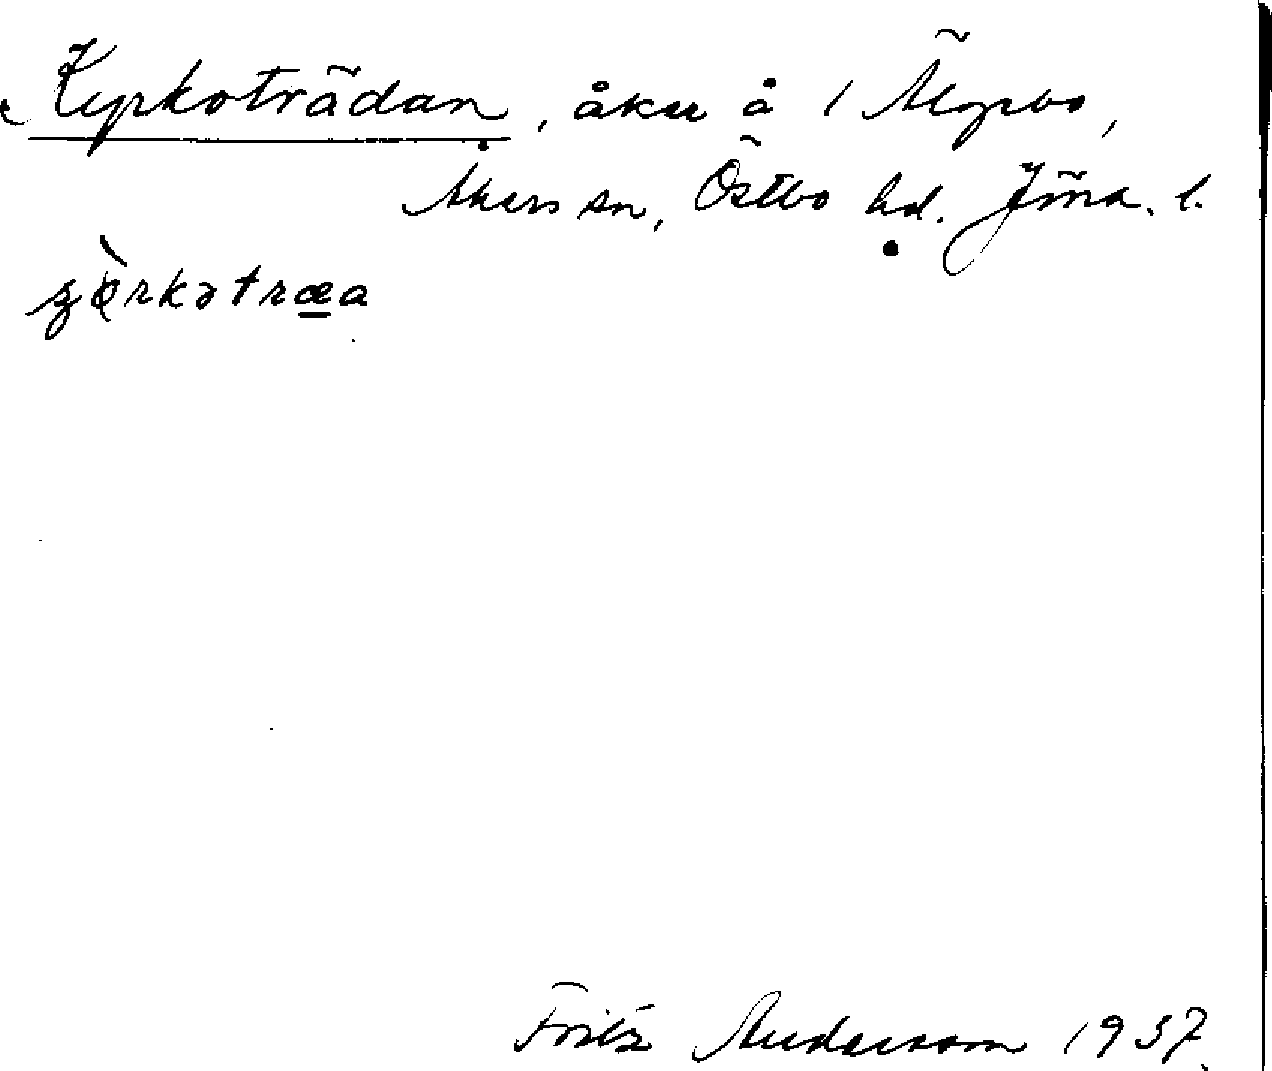 Kyrkoträdan, åker å 1 Älgbo,
Åkers sn, Östbo hd. Jöna. l.
Fritz Andersson 1937